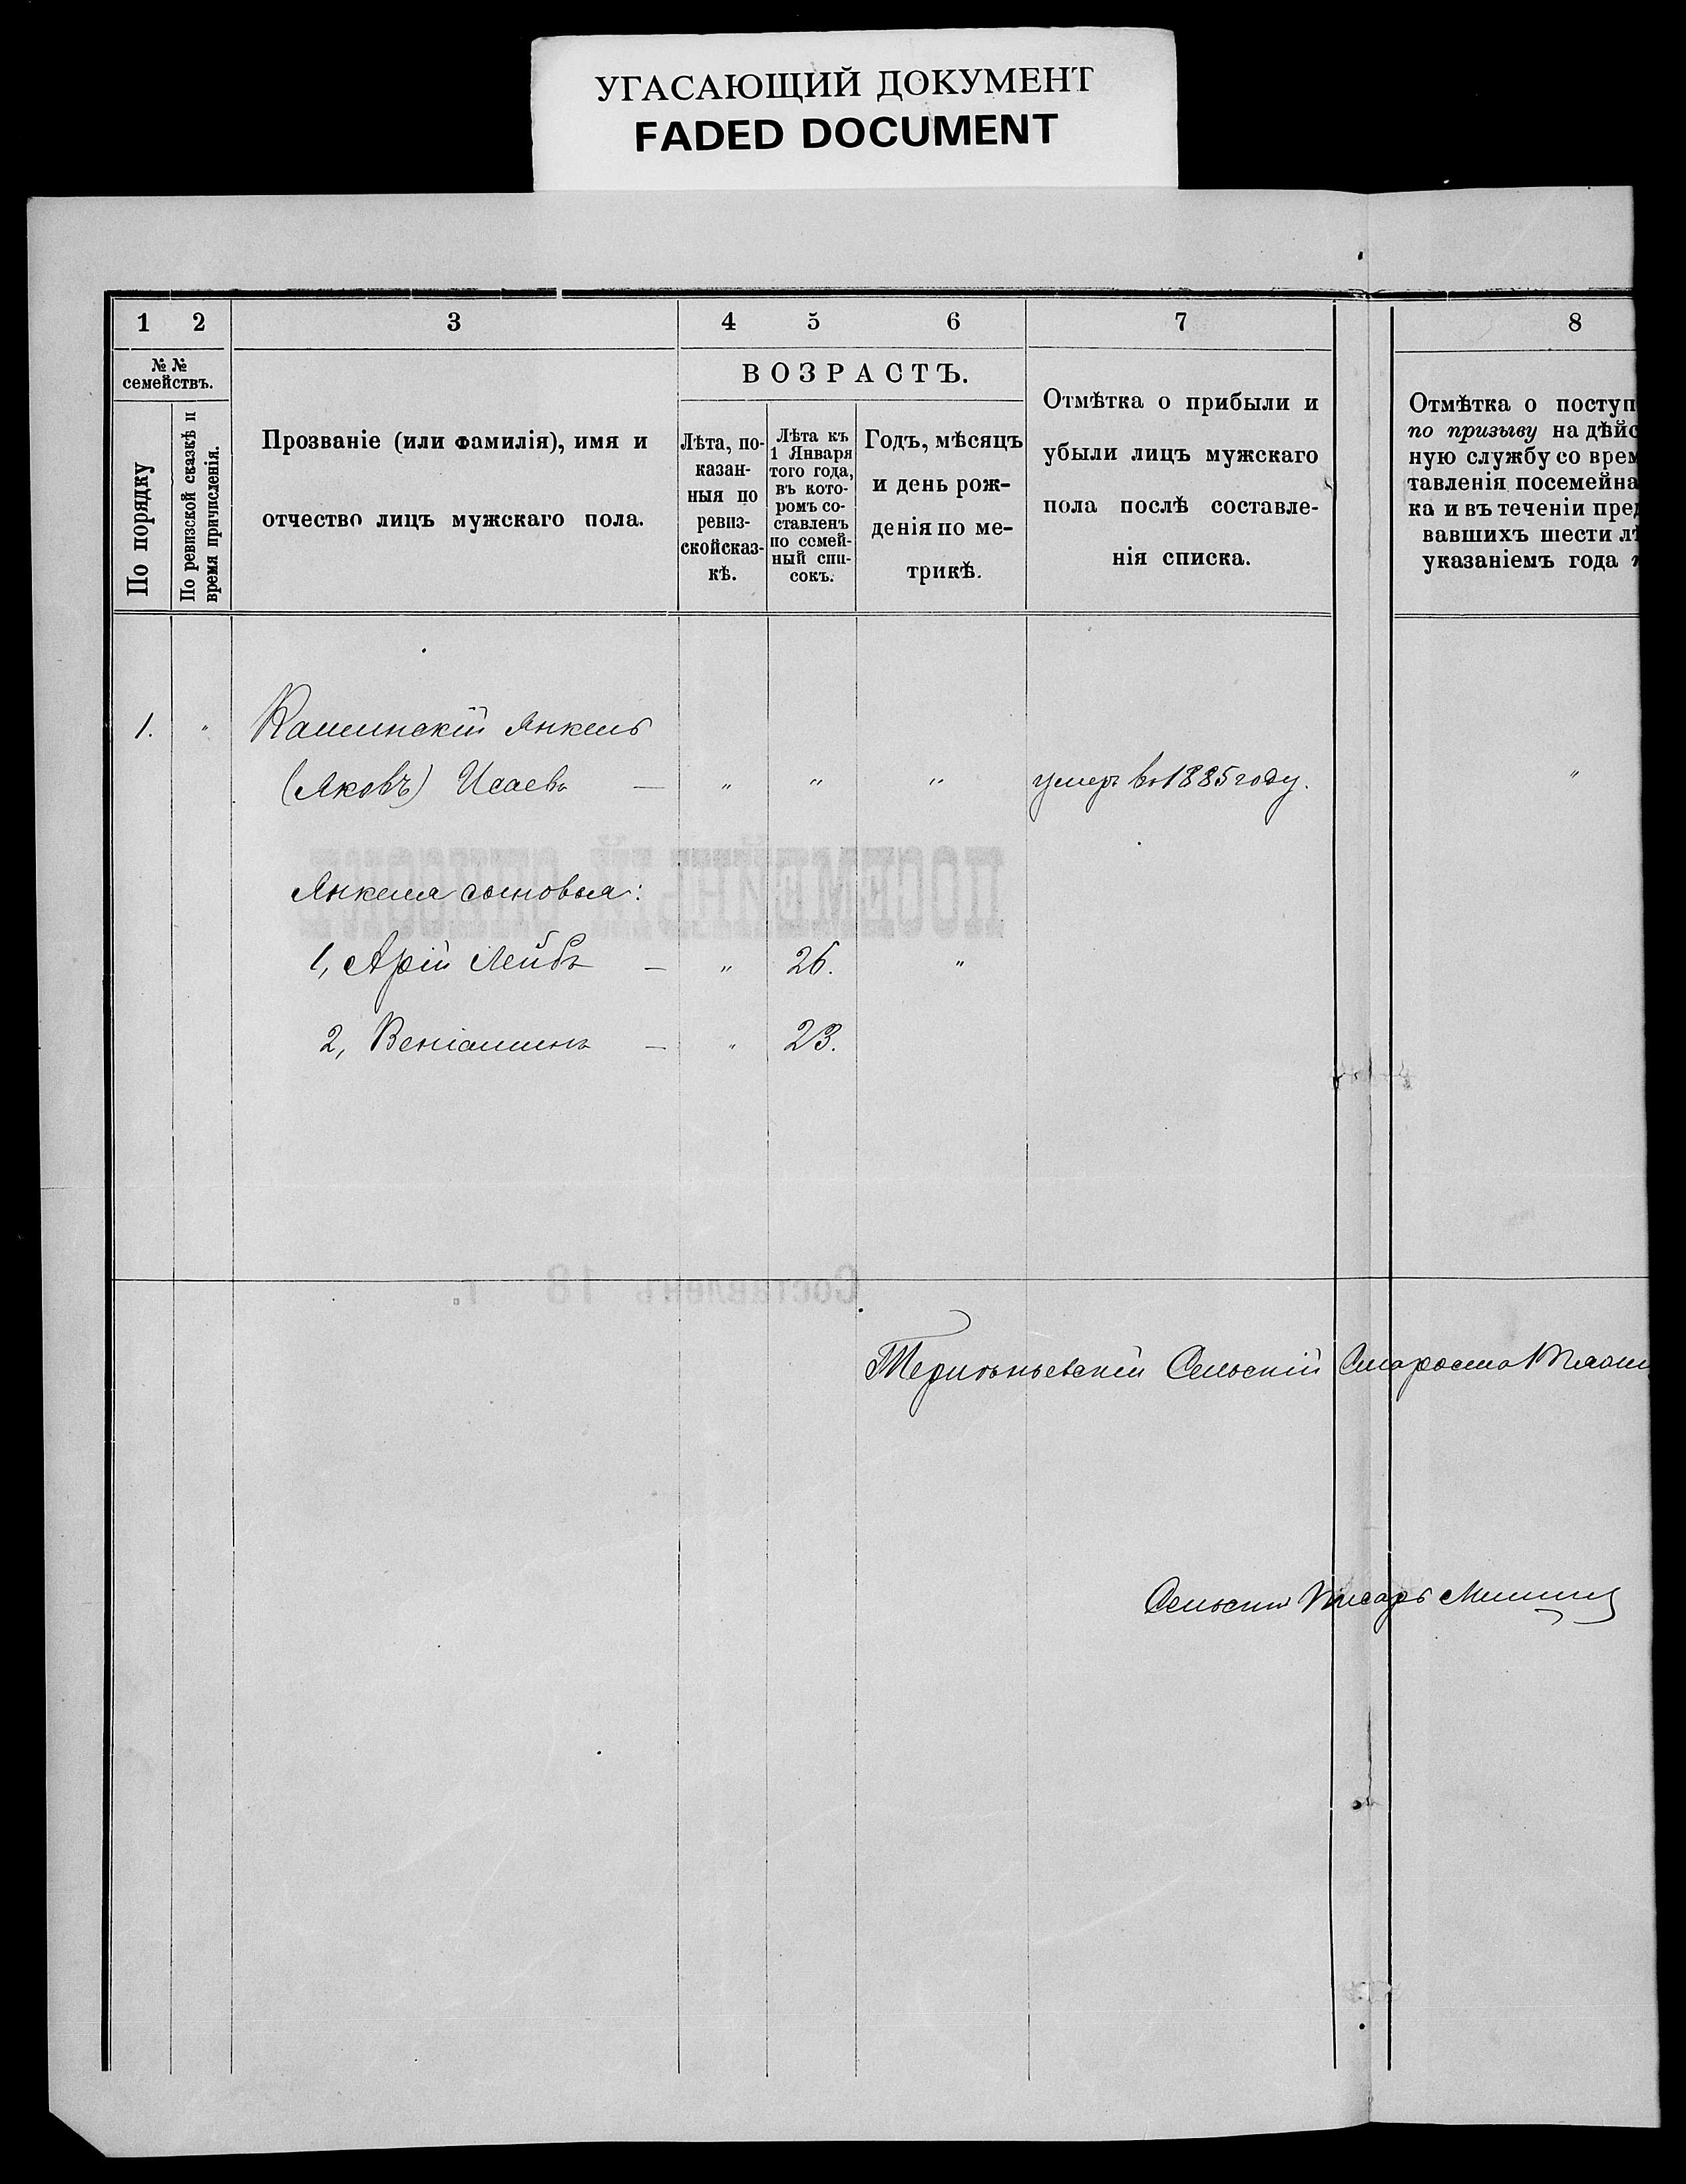 УГАСАЮЩИЙ ДОКУМЕНТ
FADED DOCUMENT
1 2 3 4 5 6 7 8
№ №
семействъ.
По порядку
По ревизской сказкѣ и
время причисленія.
Прозваніе (или Фамилія), имя и
отчество лицъ мужскаго пола.
ВОЗРАСТЪ.
Лѣта, по-
казан-
ныя по
ревиз-
скойсказ-
кѣ.
Лѣта къ
1 Января
того года,
въ кото-
ромъ со-
ставленъ
по семей-
ный спи-
сокъ.
Годъ, мѣсяцъ
и день рож-
денія по ме-
трикѣ.
Отмѣтка о прибыли и
убыли лицъ мужскаго
пола послѣ составле-
нія списка.
Отмѣтка о поступ
по призыву на дѣйс
ную службу со врем
тавленія посемейна
ка и въ теченіи пред
вавшихъ шести лѣ
указаніемъ года
1. " Каминскій Янкель
(Яковъ) Исаевъ — " " " умеръ въ 1885 году. "
ПОСЕМЕЙНЫЙ СПИСОКЪ
Янкеля сыновья:
1, Арій Лейбъ — " 26. "
2, Веніаминъ — " 23.
Составленъ 18 г.
Сельскій Староста
Сельскій Писарь